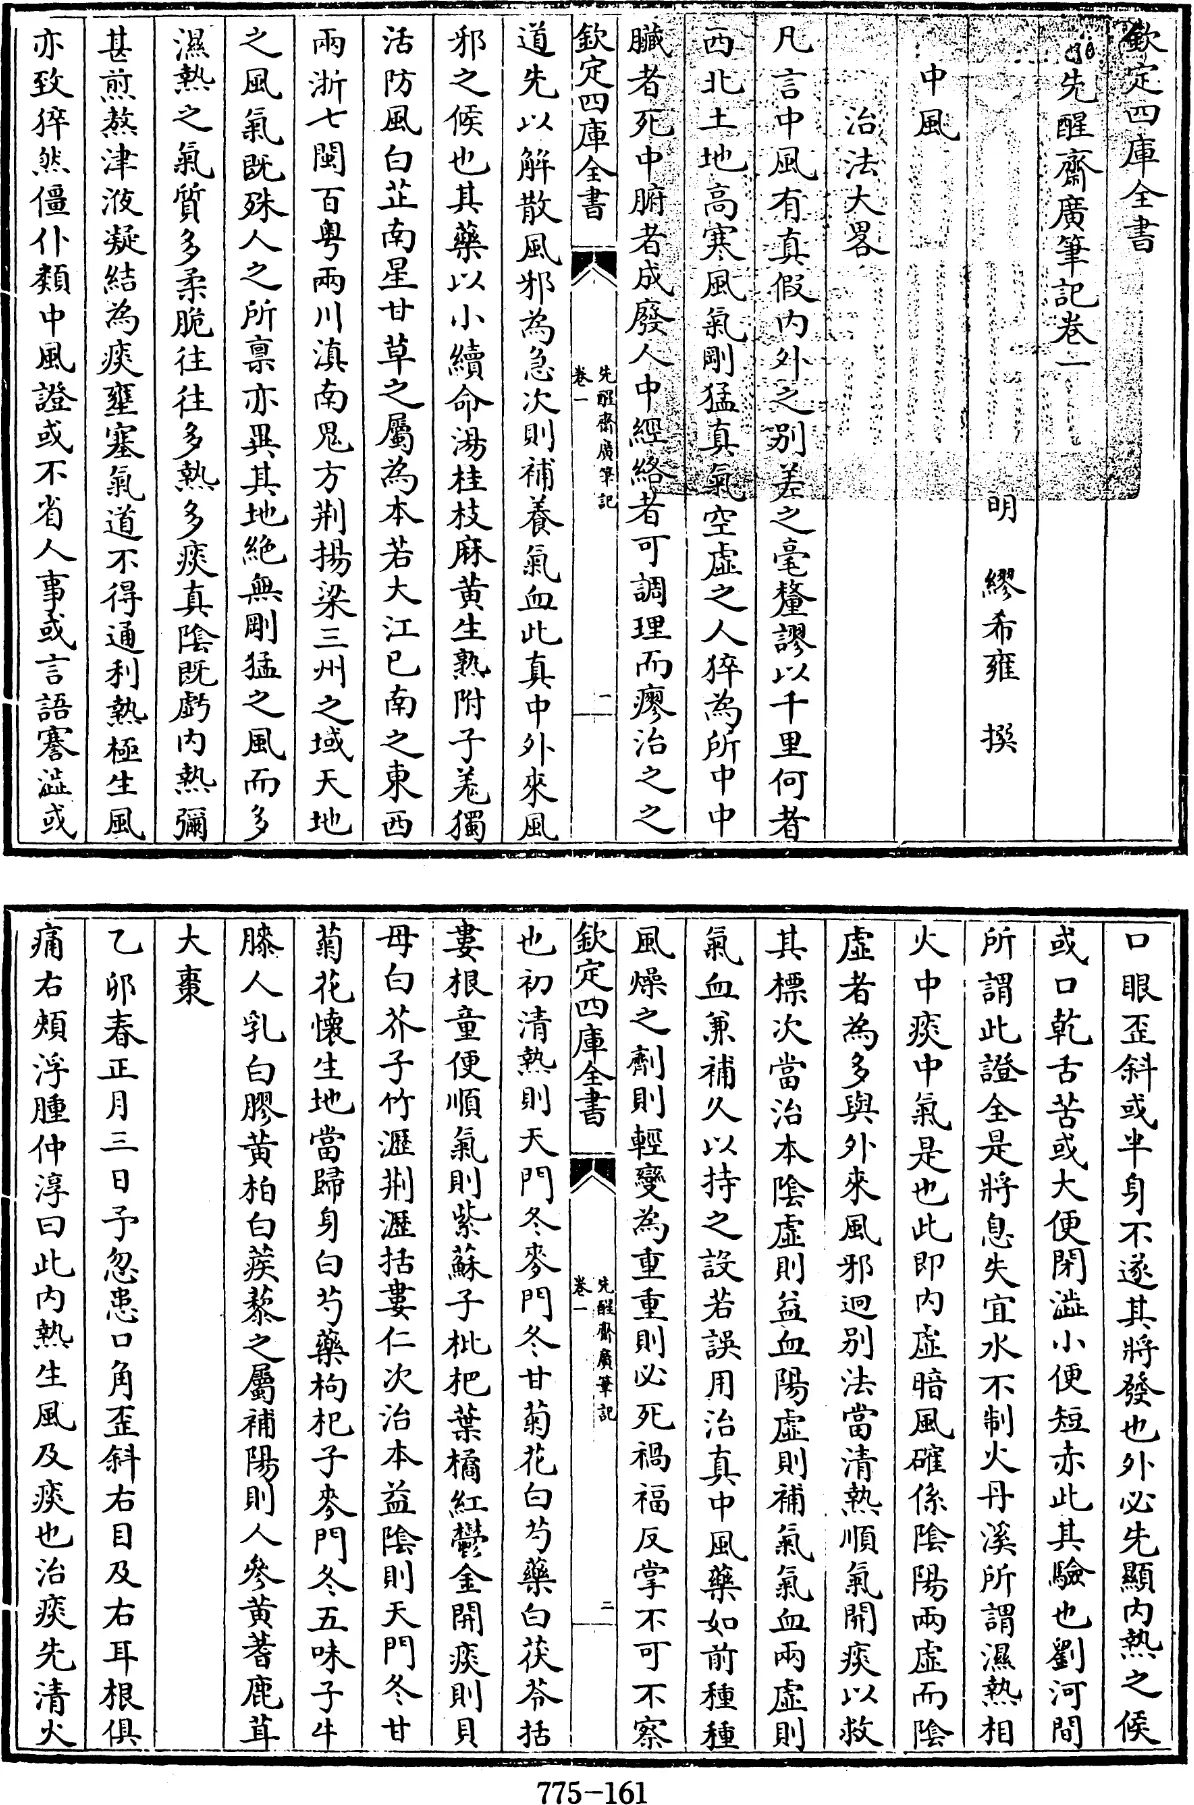 欽定四庫全書
先醒齋廣筆記卷一
明 繆希雍 撰
中風
治法大畧
凡言中風有真假内外之别差之毫釐謬以千里何者
西北土地高寒風氣剛猛真氣空虛之人猝為所中中
臟者死中腑者成廢人中經絡者可調理而瘳治之之
欽定四庫全書
先醒齋廣筆記
卷一
一
道先以解散風邪為急次則補養氣血此真中外來風
邪之候也其藥以小續命湯桂枝麻黄生熟附子羗獨
活防風白芷南星甘草之屬為本若大江已南之東西
兩浙七閩百粤兩川滇南鬼方荆揚梁三州之域天地
之風氣既殊人之所禀亦異其地絶無剛猛之風而多
濕熱之氣質多柔脆往往多熱多痰真陰既虧内熱彌
甚煎熬津液凝結為痰壅塞氣道不得通利熱極生風
亦致猝然僵仆類中風證或不省人事或言語蹇澁或
口眼歪斜或半身不遂其將發也外必先顯内熱之候
或口乾舌苦或大便閉澁小便短赤此其驗也劉河間
所謂此證全是將息失宜水不制火丹溪所謂濕熱相
火中痰中氣是也此即内虛暗風確係陰陽兩虛而陰
虛者為多與外來風邪迥别法當清熱順氣開痰以救
其標次當治本陰虛則益血陽虛則補氣氣血兩虛則
氣血兼補久以持之設若誤用治真中風藥如前種種
風燥之劑則輕變為重重則必死禍福反掌不可不察
欽定四庫全書
先醒齋廣筆記
卷一
二
也初清熱則天門冬麥門冬甘菊花白芍藥白茯苓括
蔞根童便順氣則紫蘇子枇杷葉橘紅鬱金開痰則貝
母白芥子竹瀝荆瀝括蔞仁次治本益陰則天門冬甘
菊花懷生地當歸身白芍藥枸杞子麥門冬五味子牛
膝人乳白膠黄柏白蒺藜之屬補陽則人參黄蓍鹿茸
大棗
乙卯春正月三日予忽患口角歪斜右目及右耳根俱
痛右頰浮腫仲淳曰此内熱生風及痰也治痰先清火
775-161